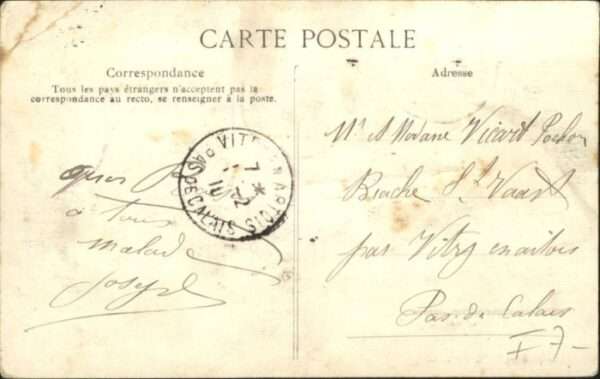 CARTE POSTALE
Correspondance
Tous les pays étrangers n'acceptent pas la
correspondance au recto, se renseigner à la poste.
à tous
malade
Joseph
VITRY-EN-ARTOIS
PAS DE CALAIS
7 - 2
10
Adresse
Mr et Madame Vicart
Biache St Vaast
par Vitry en artois
Pas de Calais